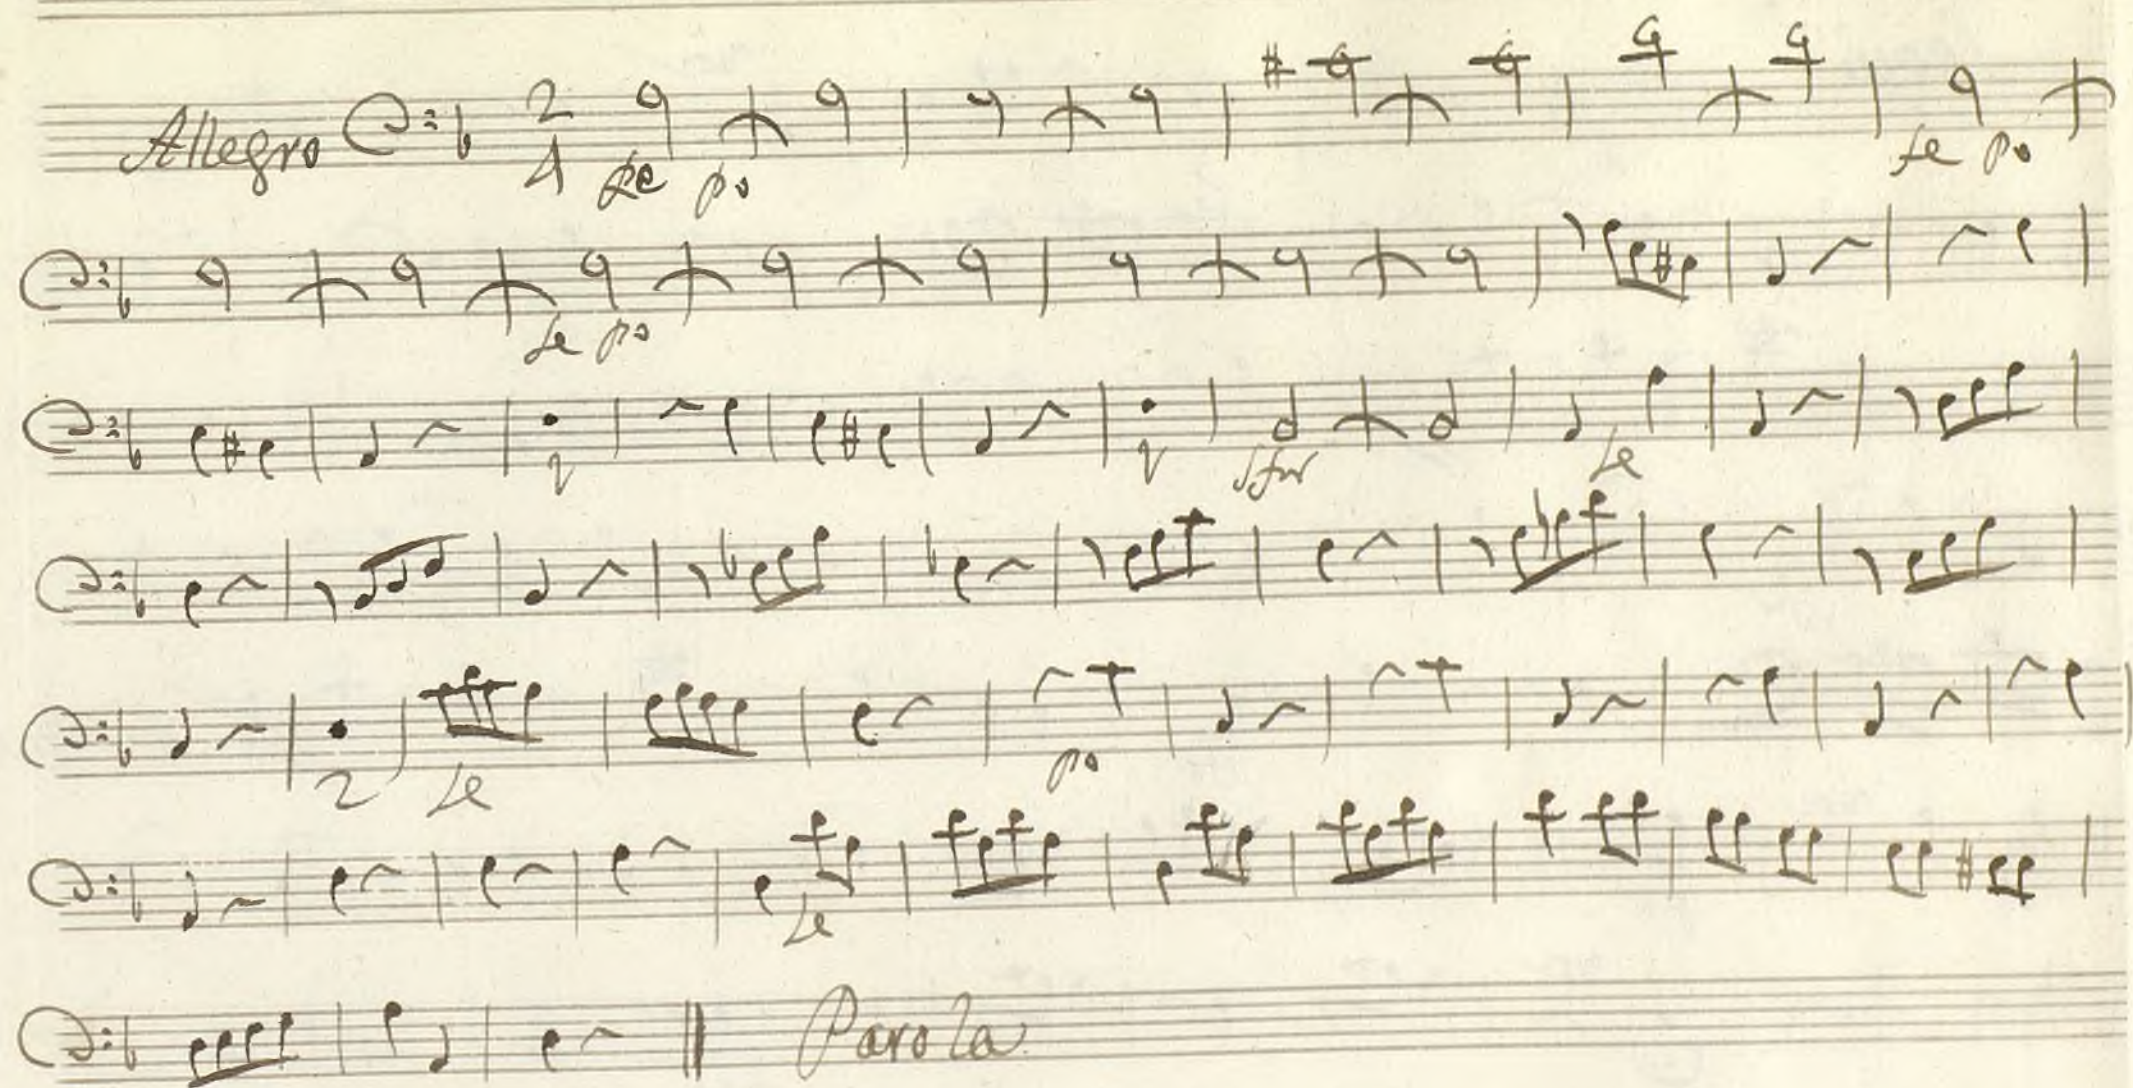 Allegro 2 4 fe po fe po
fe po
sfor fe
2 fe po
fe
Parola